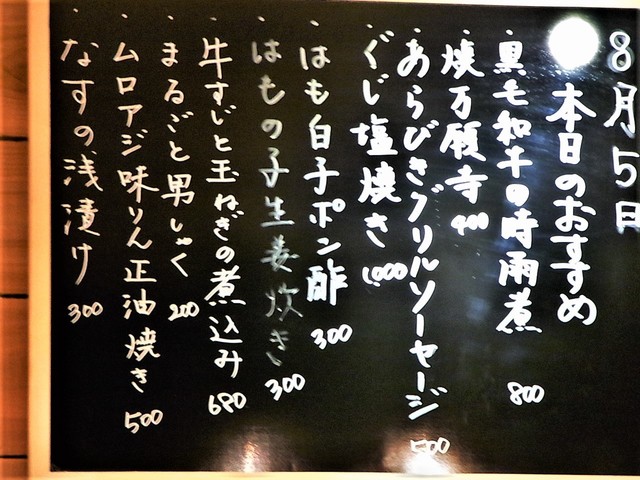 8月5日
本日のおすすめ
・黒毛和牛の時雨煮 800
・焼万願寺 400
・あらびきグリルソーセージ 500
・ぐじ塩焼き 1,000
・はも白子ポン酢 300
・はもの子生姜炊き 300
・牛すじと玉ねぎの煮込み 680
・まるごと男しゃく 200
・ムロアジ味りん正油焼き 500
・なすの浅漬け 300